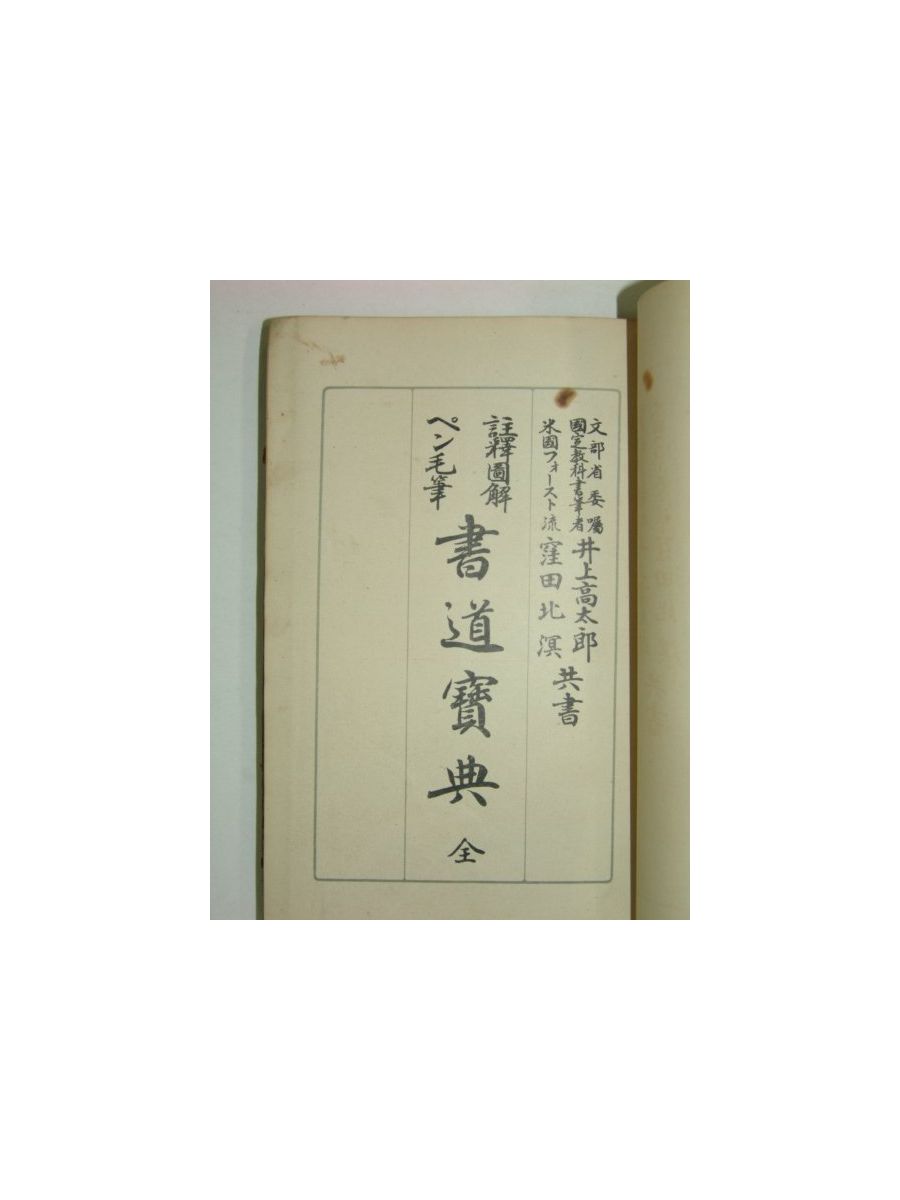 文部省委嘱
國定教科書筆者
井上高太郎
米國フォースト流
窪田北溟
共書
註釋圖解
ペン毛筆
書道寶典 全